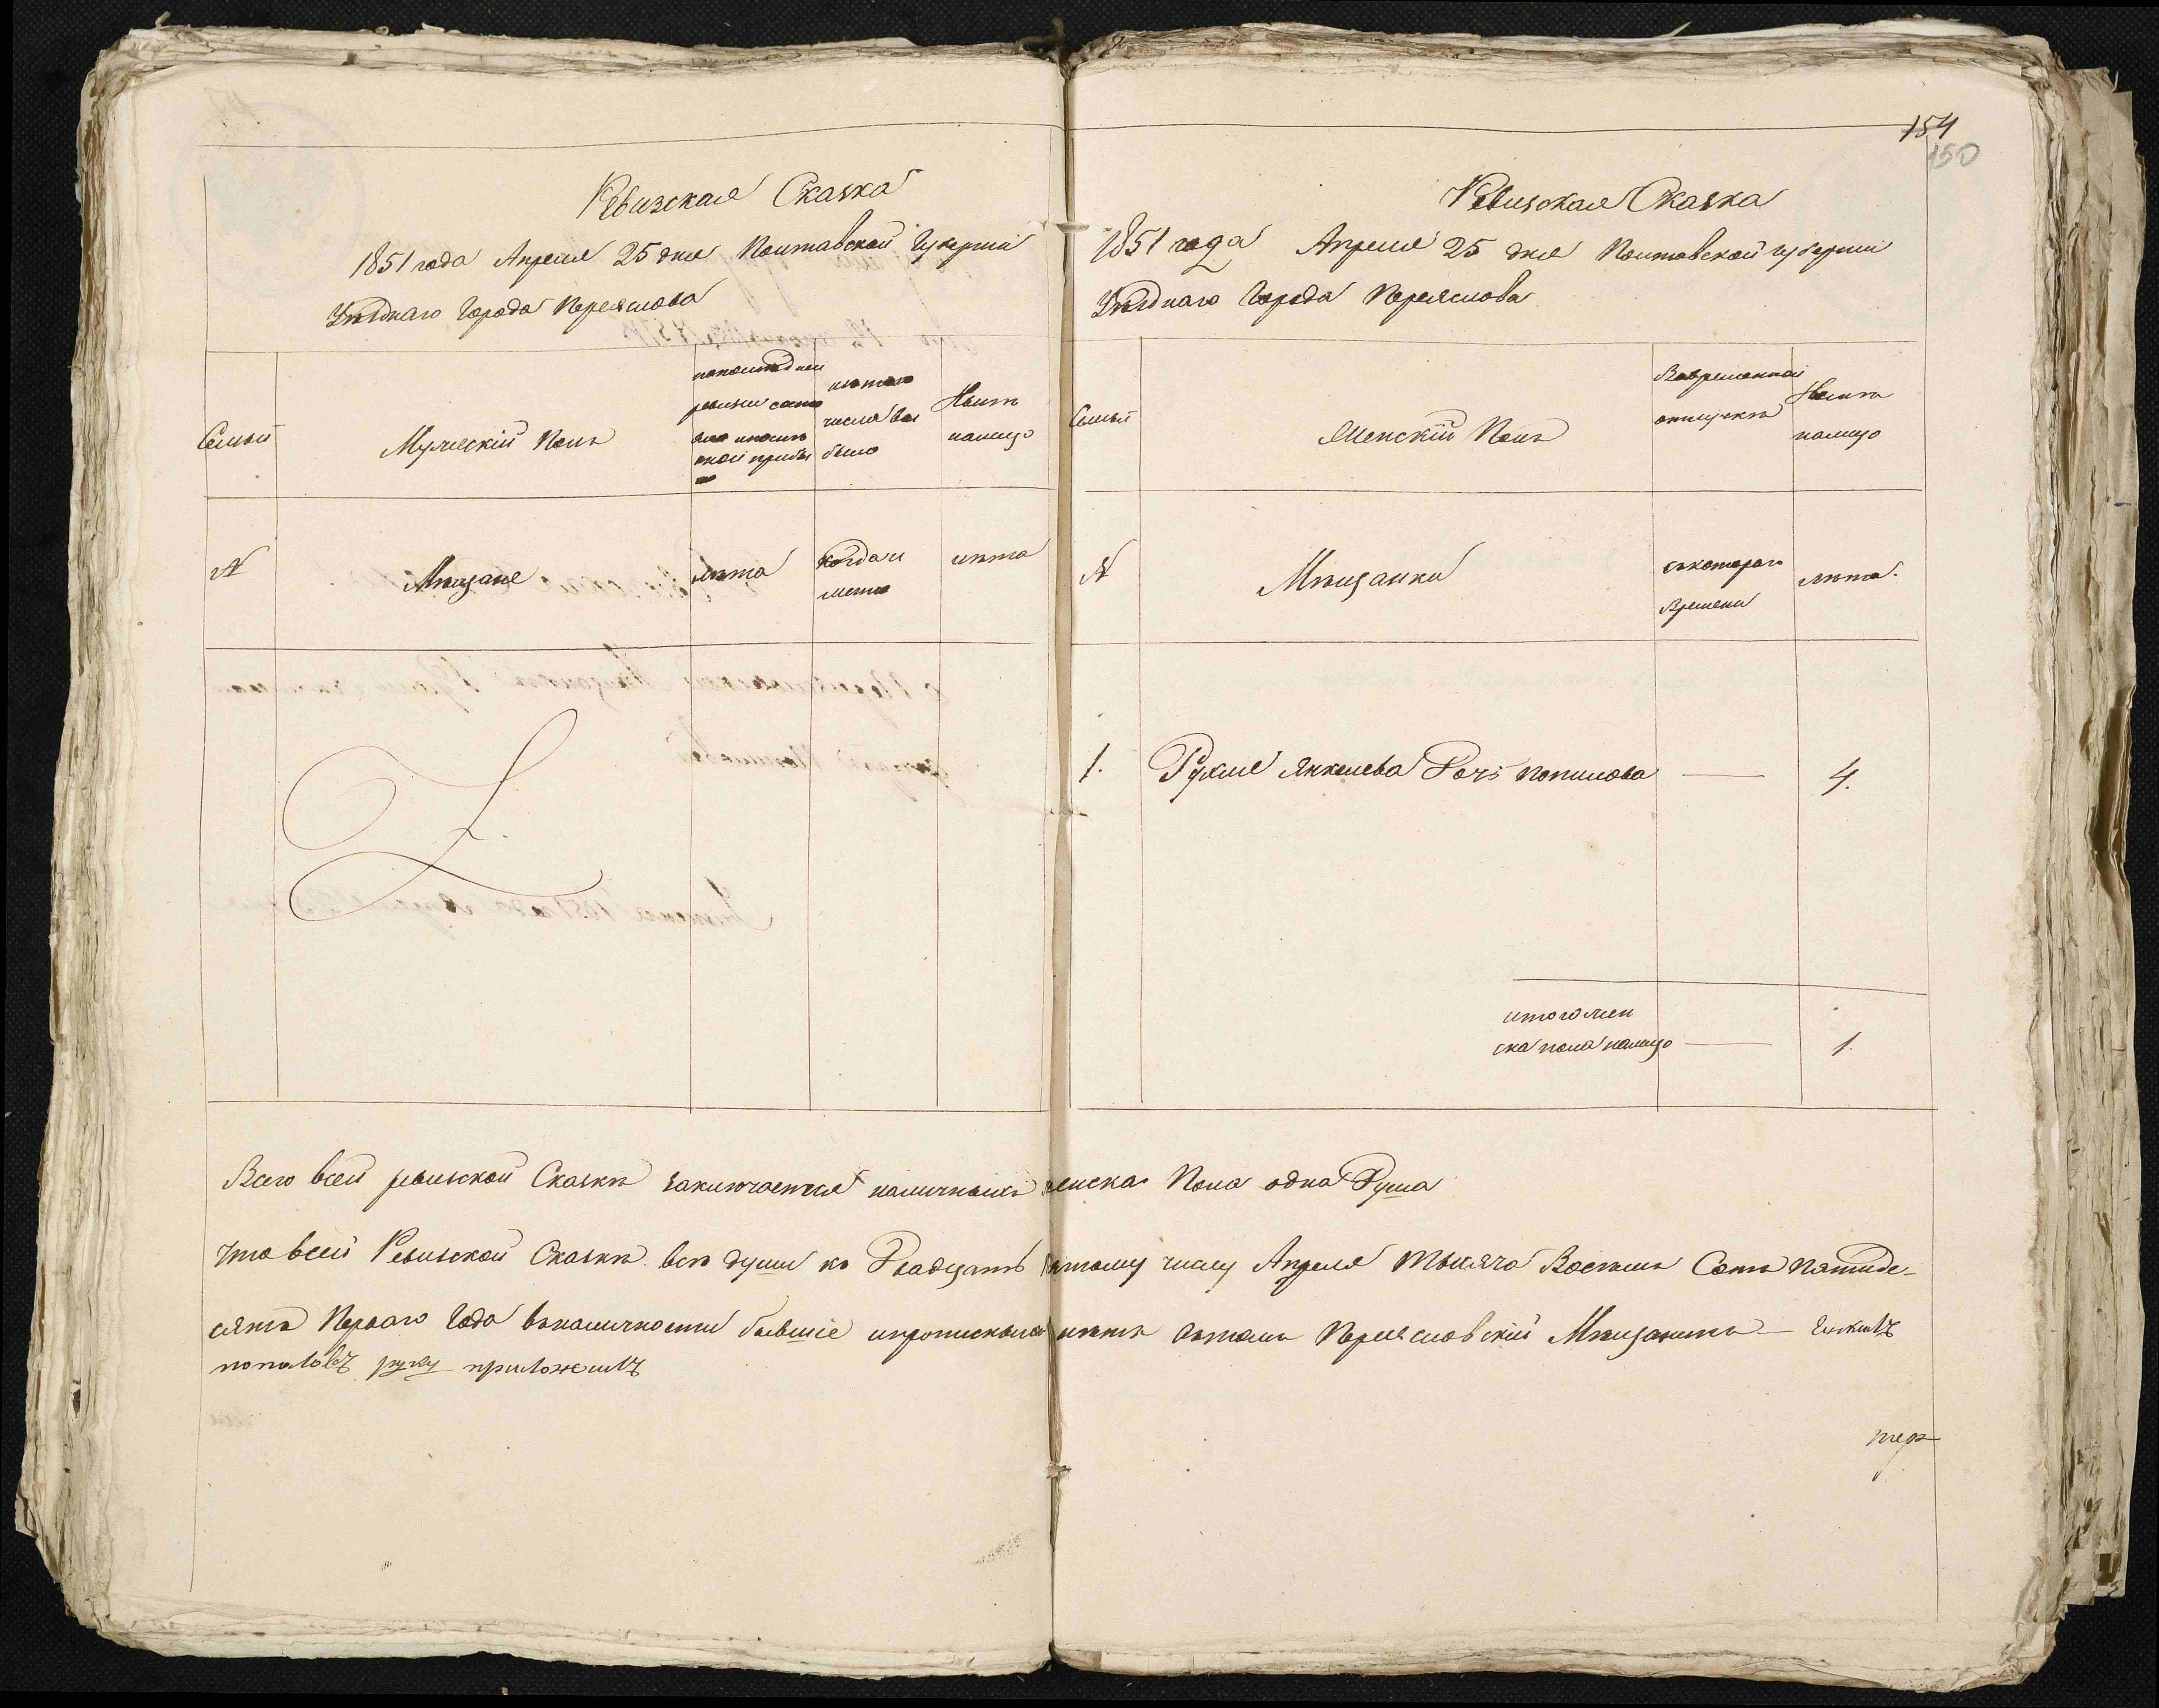 154
150
Ревизская Сказка
1851 года Апреля 25 дня Полтавской Губерніи
Уѣзднаго Города Переяслова
Семьи
Мужескій Полъ
попослѣдней
ревизіи состо
яло и послѣ
оной прибы
ло
изтого
числа вы
было
Нынѣ
налицо
№
Мѣщане
лѣта
когда и
лѣта
Ревизская Сказка
1851 года Апреля 25 дня Полтавской губерніи
Уѣзднаго Города Переяслова
Семьи
Женскій Полъ
Вовременной
отлучкѣ
Нынѣ
налицо
№
Мѣщанки
съкотораго
времени
лѣта.
1. Рухля Янкелева Дочь Попилова — 4.
итого жен
ска пола налицо — 1.
Всего всей ревизской Сказкѣ заключается наличныхъ женска Пола одна Душа
Что всей Ревизской Сказкѣ всѣ души ко Двадцать пятому числу Апреля тысяча Восемь Сотъ Пятиде-
сятъ Перваго Года вналичности бывшіе Переясловскій Мѣщанинъ —
руку приложилъ